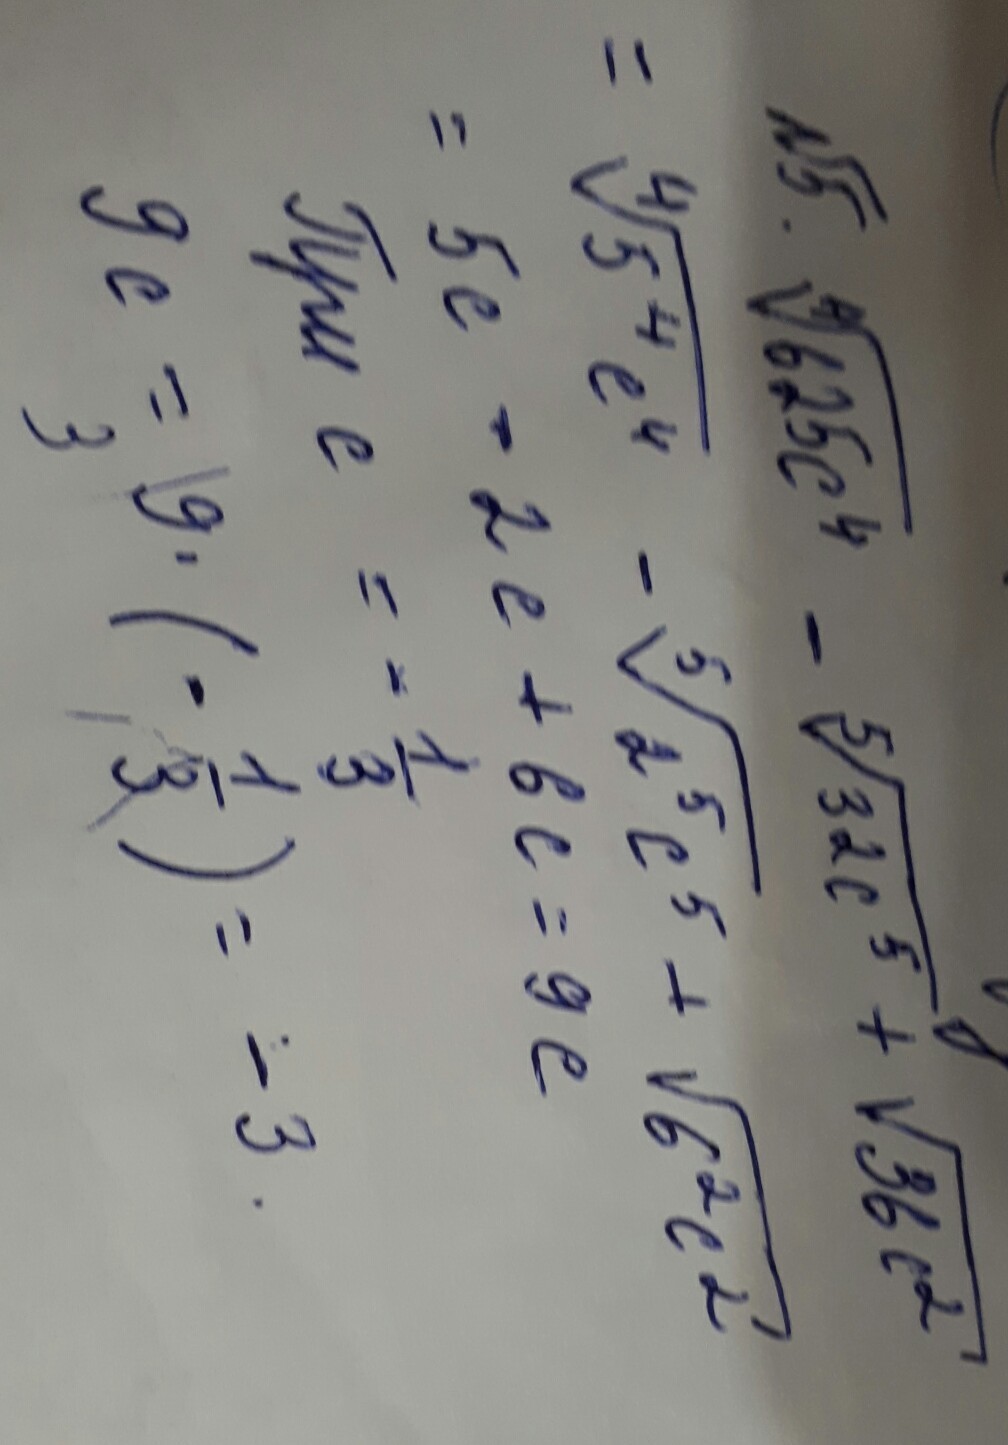 №5. ⁴√625c⁴ - ⁵√32c⁵ + √36c²
= ⁴√5⁴c⁴ - ⁵√2⁵c⁵ + √6²c²
= 5c - 2c + 6c = 9c
При c = - 1/3
9c = 9 · (- 1/3) = - 3.
3